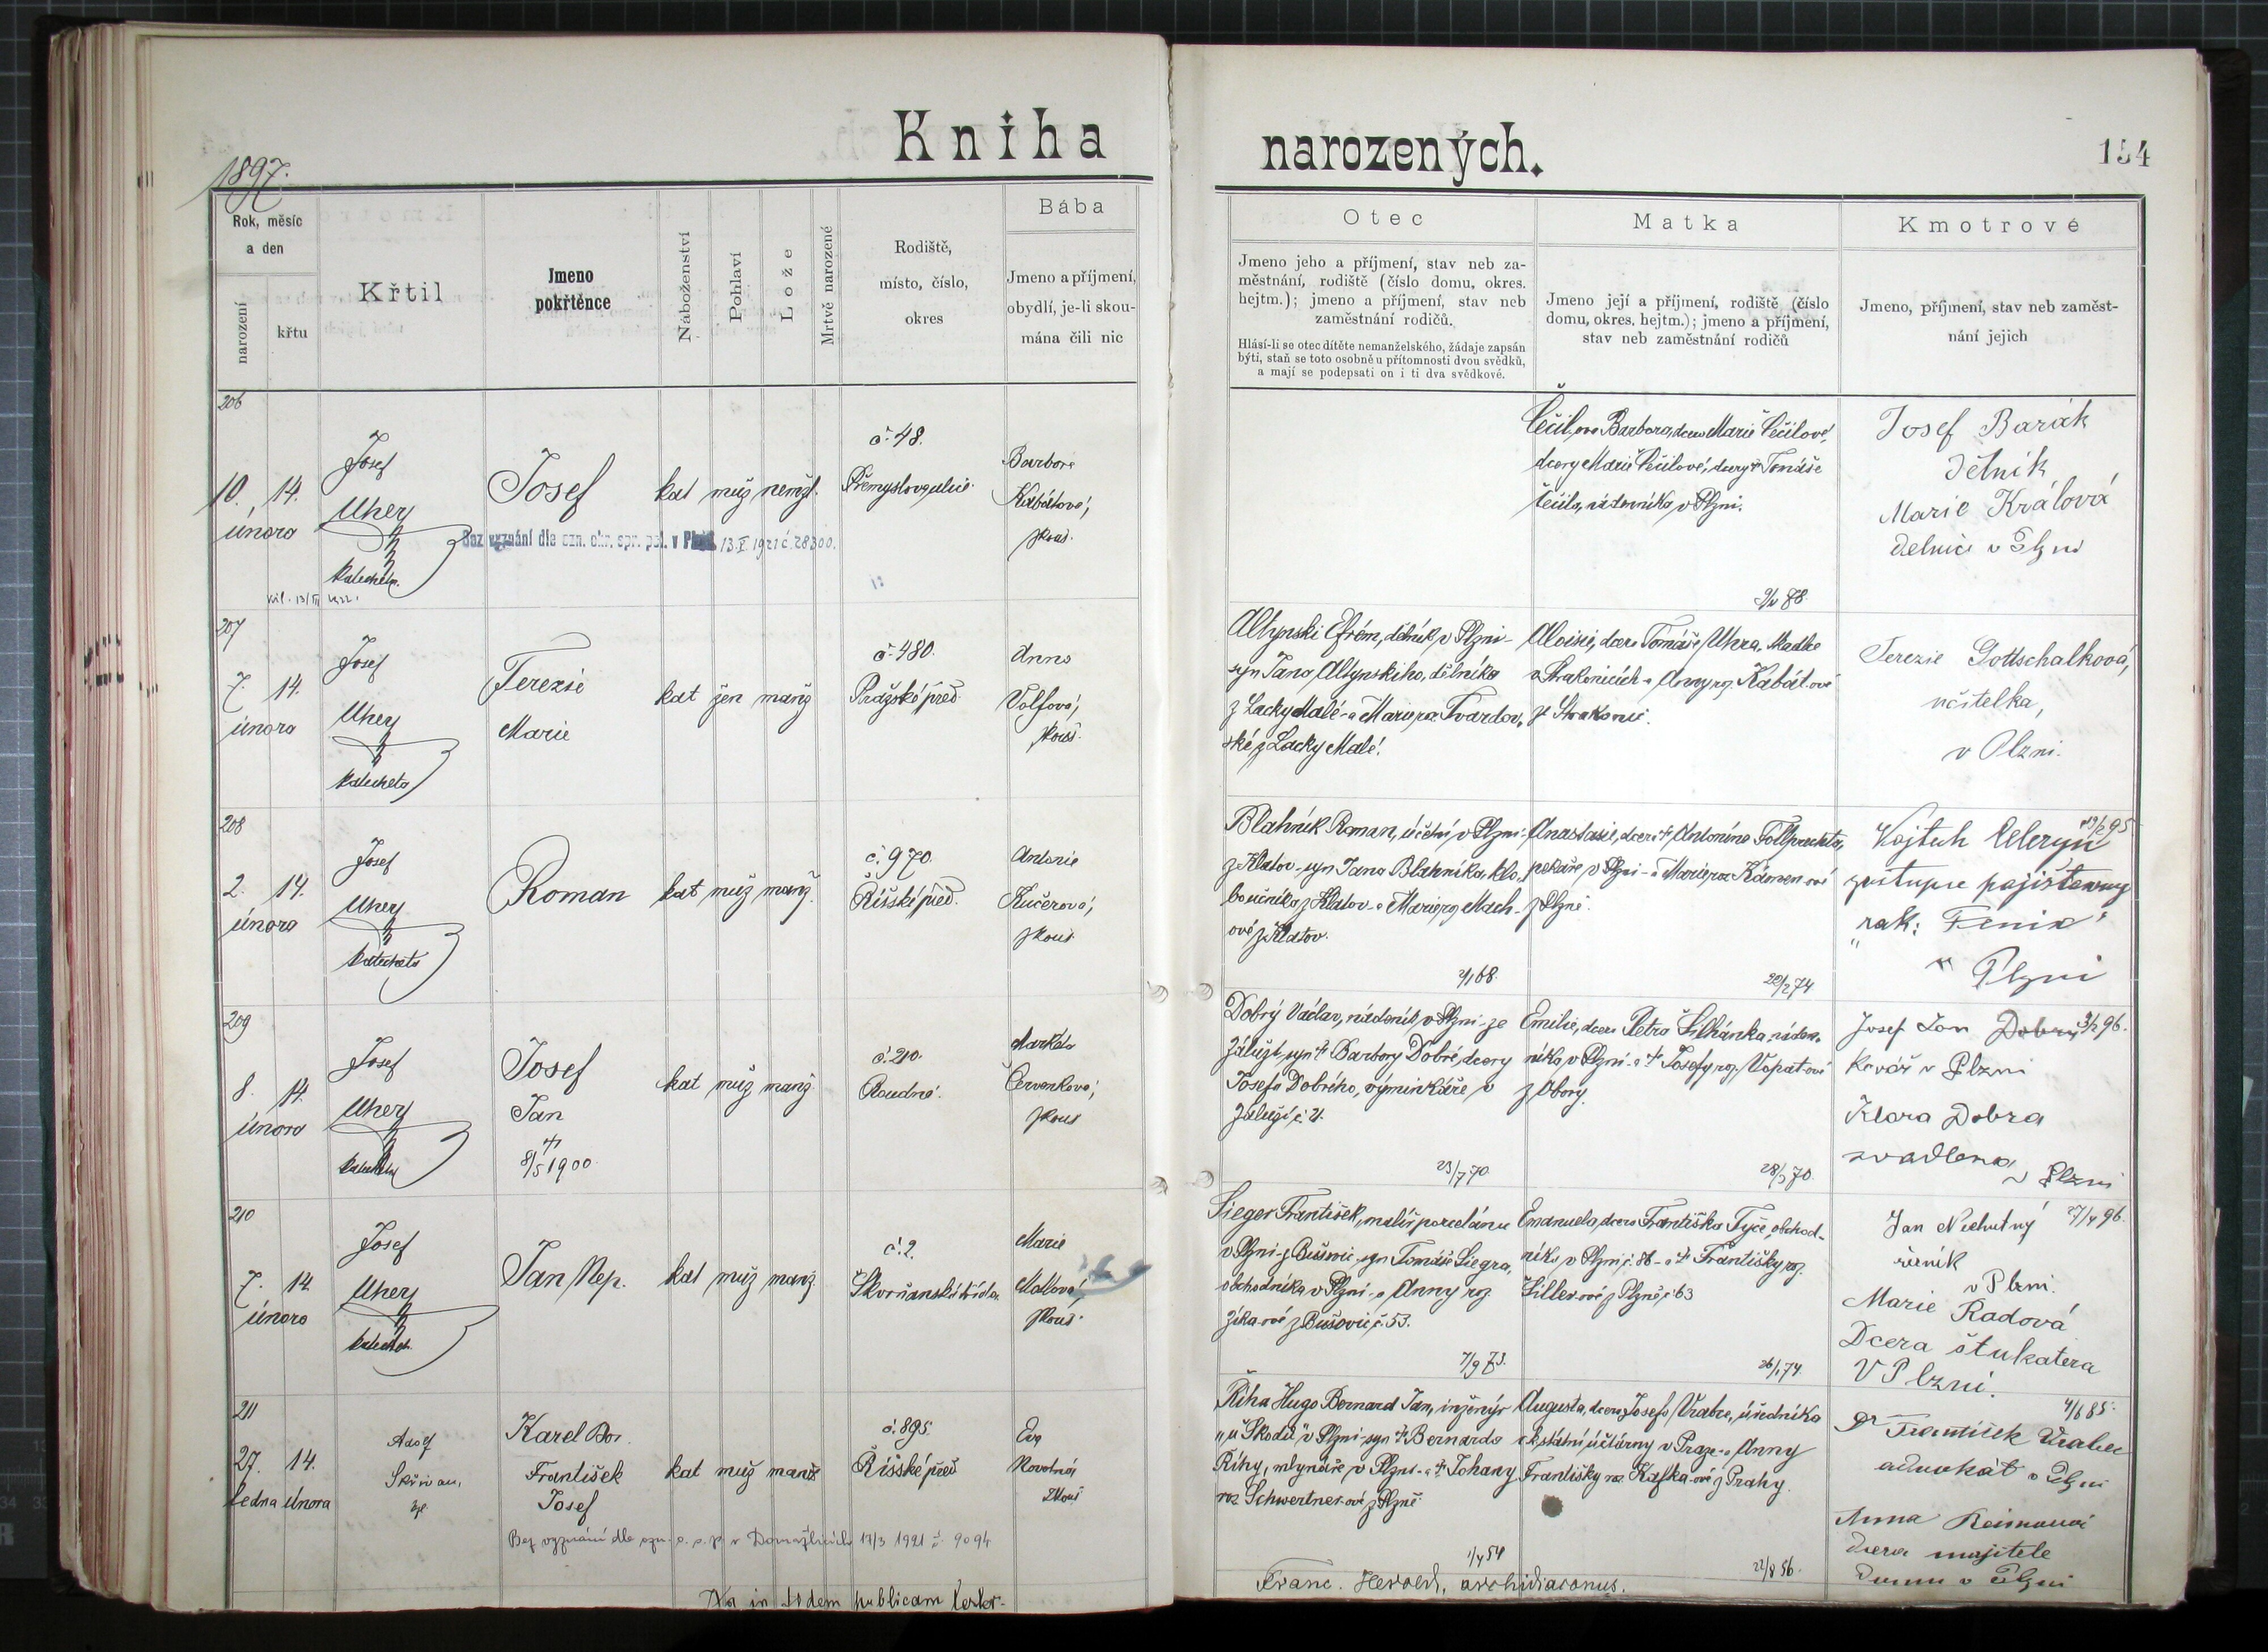 Kniha narozených.
154
1897.
Rok, měsíc
a den
narození
křtu
Křtil
Jmeno
pokřtěnce
Náboženství
Pohlaví
Lože
Mrtvě narozené
Rodiště,
místo, číslo,
okres
Bába
Jmeno a příjmení,
obydlí, je-li skou-
mána čili nic
Otec
Jmeno jeho a příjmení, stav neb za-
městnání, rodiště (číslo domu, okres.
hejtm.); jmeno a příjmení, stav neb
zaměstnání rodičů.
Hlásí-li se otec dítěte nemanželského, žádaje zapsán
býti, staň se toto osobně u přítomnosti dvou svědků,
a mají se podepsati on i ti dva svědkové.
Matka
Jmeno její a příjmení, rodiště (číslo
domu, okres. hejtm.); jmeno a příjmení,
stav neb zaměstnání rodičů
Kmotrové
Jmeno, příjmení, stav neb zaměst-
nání jejich
206
10. 14.
února
Josef
Uher
katecheta
Josef
kat muž nemžl.
č. 48.
Přemyslova ulice
Barbora
Kabátová,
zkouš.
Bez vyznání dle ozn. okr. spr. pol. v Plzni 13.X.1921 č. 28300.
Barbora, dcera Marie
dcery Marie dcery † Tomáše
nádenníka v Plzni.
Josef Barák
dělník
Marie Králová
dělnice v Plzni
207
7. 14.
února
Josef
Uher
katecheta
Terezie
Marie
kat žen manž
č. 480.
Pražské před.
Anna
Volfová,
zkouš.
Altynski Efrém, dělník v Plzni -
syn Jana Altynskiho, dělníka
z Lacky Malé - a Marie roz. Tvardov-
ské z Lacky Malé.
9/10 78.
Aloisie, dcera Tomáše Uhra,
v Strakonicích a Anny roz. Kabátové
z Strakonic.
Terezie Gottschalková,
učitelka,
v Plzni.
208
2. 14.
února
Josef
Uher
katecheta
Roman
kat muž manž.
č. 970.
Říšské před.
Antonie
Kučerová,
zkouš.
Blahník Roman, účetní v Plzni -
z Klatov - syn Jana Blahníka, klo-
boučníka z Klatov - a Marie roz. Mach-
ové z Klatov.
2/1 68.
Anastasie, dcera † Antonína
pekaře v Plzni - a Marie roz. Kámen-ové
z Plzně.
20/2 74
Vojtěch Celeryn
zástupce pojišťovny
„rak: Fenix“
v Plzni
209
8. 14.
února
Josef
Uher
katecheta
Josef
Jan
†
8/5 1900
kat muž manž.
č. 210.
Roudná.
Markéta
Červenková,
zkouš
Dobrý Václav, nádeník v Plzni - ze
Záluží, syn † Barbory Dobré, dcery
Josefa Dobrého, výminkáře v
Záluží č. 21.
23/7 70
Emilie, dcera Petra Šilhánka, náden-
níka v Plzni - a † Josefy roz. Vopatové
z Obory.
28/3 70.
3/2 96.
Josef Jan Dobrý
kovář v Plzni
Klara Dobra
svadlena
v Plzni
210
7. 14.
února
Josef
Uher
katecheta
Jan Nep.
kat muž manž.
č. 2.
Škvrňanská třída
Marie
Mallová,
zkouš.
Sieger František, malíř porcelánu
v Plzni - z Bušovic - syn Tomáše Siegra,
obchodníka v Plzni - a Anny roz.
Zíka-ové z Bušovic č. 53.
7/9 73.
Emanuela, dcera Františka Tyče, obchod-
níka v Plzni č. 86 - a † Františky roz.
Šiller-ové z Plzně č. 63
26/1 74.
27/4 96.
Jan Nechutný
řezník
v Plzni.
Marie Radová
Dcera štukatera
V Plzni.
211
27. 14.
ledna února
Adolf
Skřivan,
Karel Bor.
František
Josef
kat muž manž
č. 895.
Říšské před.
Eva
Novotná
zkouš
Bez vyznání dle ozn. o. s. p. v Domažlicích 17/3 1921 č. 9094
Říha Hugo Bernard Jan, inženýr
„u Škodů“ v Plzni - syn † Bernarda
Říhy, mlynáře v Plzni - a † Johany
roz. Schwertner-ové z Plzně
1/4 54
Augusta, dcera Josefa Vrabce, úředníka
c. k. státní účtárny v Praze - a Anny
Františky roz. Kafka-ové z Prahy.
22/8 56.
4/6 85.
Dr František Vrabec
advokát v Plzni
Anna Reimanová
dcera majitele
domu v Plzni
Franc. Herold, archidiaconus.